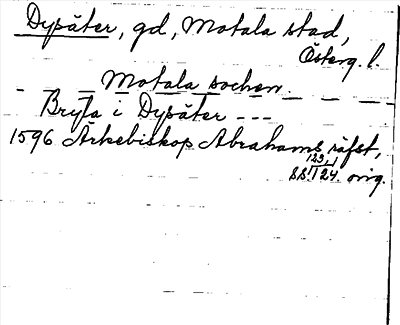 Dysäter, gd, Motala stad,
Österg. l.
Motala socken.
Bryta i Dysäter ---
1596 Ärkebiskop Abrahams räfst,
123,
ss. 124. orig.